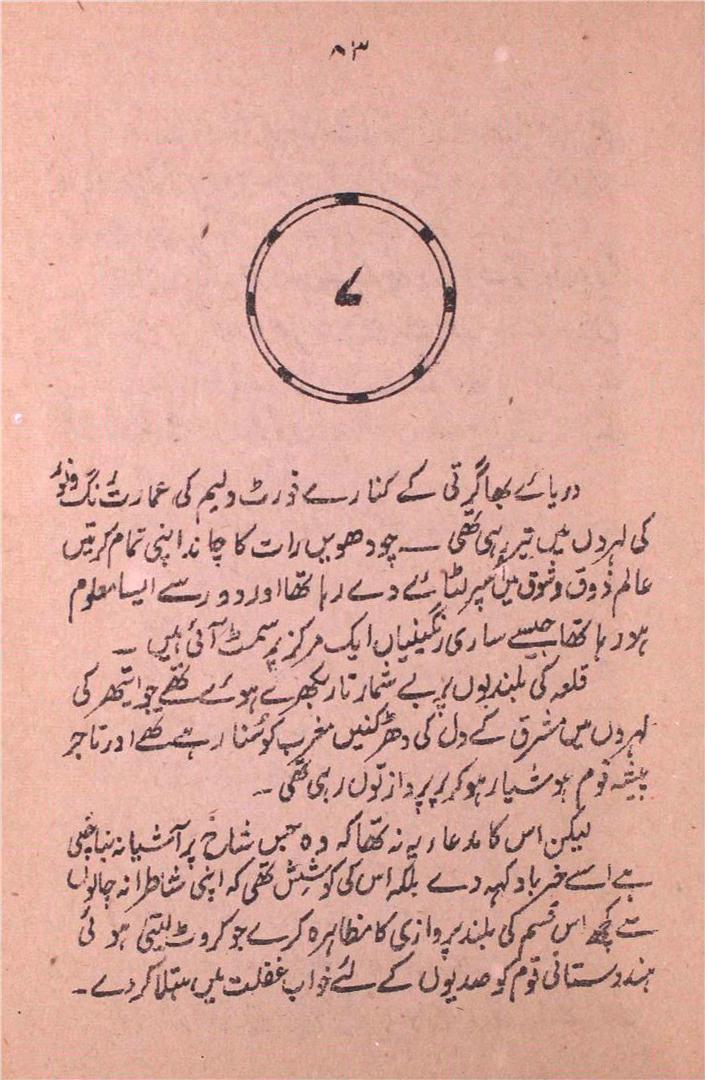 ۸۳
۷
دریائے بھاگیرتی کے کنارے فورٹ ولیم کی عمارت رنگ و نور
کی لہروں میں تیر رہی تھی — چودھویں رات کا چاند اپنی تمام کرنیں
عالم ذوق و شوق میں اس پر لٹائے دے رہا تھا اور دور سے ایسا معلوم
ہو رہا تھا جیسے ساری رنگینیاں ایک مرکز پر سمٹ آئی ہیں ۔
قلعہ کی بلندیوں پر بے شمار تار بکھرے ہوئے تھے جو ایتھر کی
لہروں میں مشرق کے دل کی دھڑکنیں مغرب کو سُنا رہے تھے اور تاجر
پیشہ قوم ہوشیار ہو کر پرِ پرواز تول رہی تھی ۔
لیکن اس کا مدعاء یہ نہ تھا کہ وہ جس شاخ پر آشیانہ بنا چکی
ہے اسے خیر باد کہہ دے بلکہ اس کی کوشش تھی کہ اپنی شاطرانہ چالوں
سے کچھ اس قسم کی بلند پروازی کا مظاہرہ کرے جو کروٹ لیتی ہوئی
ہندوستانی قوم کو صدیوں کے لئے خواب غفلت میں مبتلا کر دے ۔